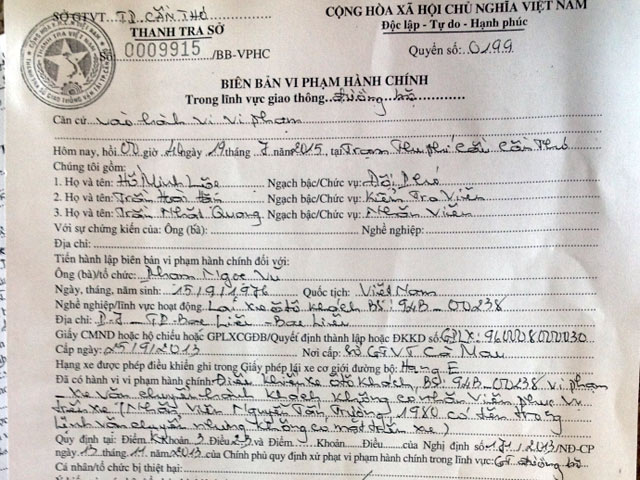 SỞ GTVT TP. CẦN THƠ
THANH TRA SỞ
Số 0009915 /BB-VPHC
CỘNG HÒA XÃ HỘI CHỦ NGHĨA VIỆT NAM
Độc lập - Tự do - Hạnh phúc
Quyển số: 0199
BIÊN BẢN VI PHẠM HÀNH CHÍNH
Trong lĩnh vực giao thông đường bộ
Căn cứ vào hành vi vi phạm
Hôm nay, hồi 00 giờ 40 ngày 19 tháng 7 năm 2015, tại Trạm Thu phí Cầu Cần Thơ
Chúng tôi gồm:
1. Họ và tên: Hồ Minh Ngạch bậc/Chức vụ: Đội Phó
2. Họ và tên: Trần Ngạch bậc/Chức vụ: Kiểm Tra Viên
3. Họ và tên: Trần Nhật Quang Ngạch bậc/Chức vụ: Nhân Viên
Với sự chứng kiến của: Ông (bà): Nghề nghiệp:
Địa chỉ:
Tiến hành lập biên bản vi phạm hành chính đối với:
Ông (bà)/tổ chức: Phạm Ngọc Vũ
Ngày, tháng, năm sinh: 15/9/1976 Quốc tịch: Việt Nam
Nghề nghiệp/lĩnh vực hoạt động: Lái xe ôtô khách BS: 94B-00238
Địa chỉ: TP Bạc Liêu - Bạc Liêu
Giấy CMND hoặc hộ chiếu hoặc GPLXCGĐB/Quyết định thành lập hoặc ĐKKD số GPLX: 960008000030
Cấp ngày: 25/9/2013 Nơi cấp: Sở GTVT Cà Mau
Hạng xe được phép điều khiển ghi trong Giấy phép lái xe cơ giới đường bộ: Hạng E
Đã có hành vi vi phạm hành chính: Điều khiển xe ôtô khách, BS: 94B-00238 vi phạm
- Xe vận chuyển hành khách không có nhân viên phục vụ
trên xe (Nhân viên Nguyễn Tấn Trường, 1980 có tên trong
lĩnh vận chuyển nhưng không có mặt trên xe)
Quy định tại: Điểm K Khoản 3 Điều 23 Điểm Khoản Điều của Nghị định số 171/2013/NĐ-CP
ngày 13 tháng 11 năm 2013 của Chính phủ quy định xử phạt vi phạm hành chính trong lĩnh vực: GT đường bộ
Cá nhân/tổ chức bị thiệt hại: